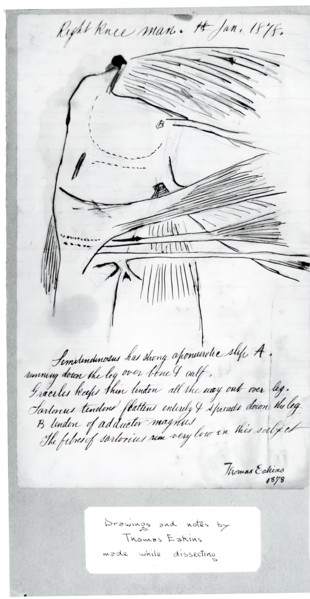 Right Knee man. 14 Jan. 1878.
B
Semitendinosus has strong aponeurotic slip A.
running down the leg over bone & calf.
Graceles keeps thin tendon all the way out over leg.
Sartorius tendons flattens entirely & spreads down the leg
B tendon of adductor magnus
The fibres of sartorius run very low in this subject
Thomas Eakins
1878
Drawings and notes by
Thomas Eakins
made while dissecting